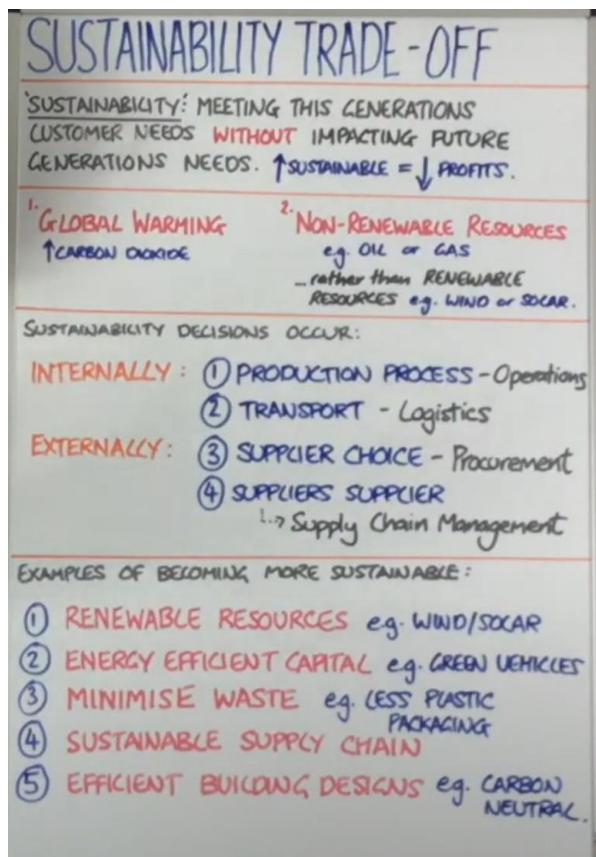 SUSTAINABILITY TRADE-OFF
'SUSTAINABILITY': MEETING THIS GENERATIONS
CUSTOMER NEEDS WITHOUT IMPACTING FUTURE
GENERATIONS NEEDS. ↑SUSTAINABLE = ↓ PROFITS.
1. GLOBAL WARMING
↑CARBON DIOXIDE
2. NON-RENEWABLE RESOURCES
e.g. OIL or GAS
...rather than RENEWABLE
RESOURCES e.g. WIND or SOLAR.
SUSTAINABILITY DECISIONS OCCUR:
INTERNALLY: ① PRODUCTION PROCESS - Operations
② TRANSPORT - Logistics
EXTERNALLY: ③ SUPPLIER CHOICE - Procurement
④ SUPPLIERS SUPPLIER
↳ Supply Chain Management
EXAMPLES OF BECOMING MORE SUSTAINABLE:
① RENEWABLE RESOURCES eg. WIND/SOLAR
② ENERGY EFFICIENT CAPITAL eg. GREEN VEHICLES
③ MINIMISE WASTE eg. LESS PLASTIC
PACKAGING
④ SUSTAINABLE SUPPLY CHAIN
⑤ EFFICIENT BUILDING DESIGNS eg. CARBON
NEUTRAL.